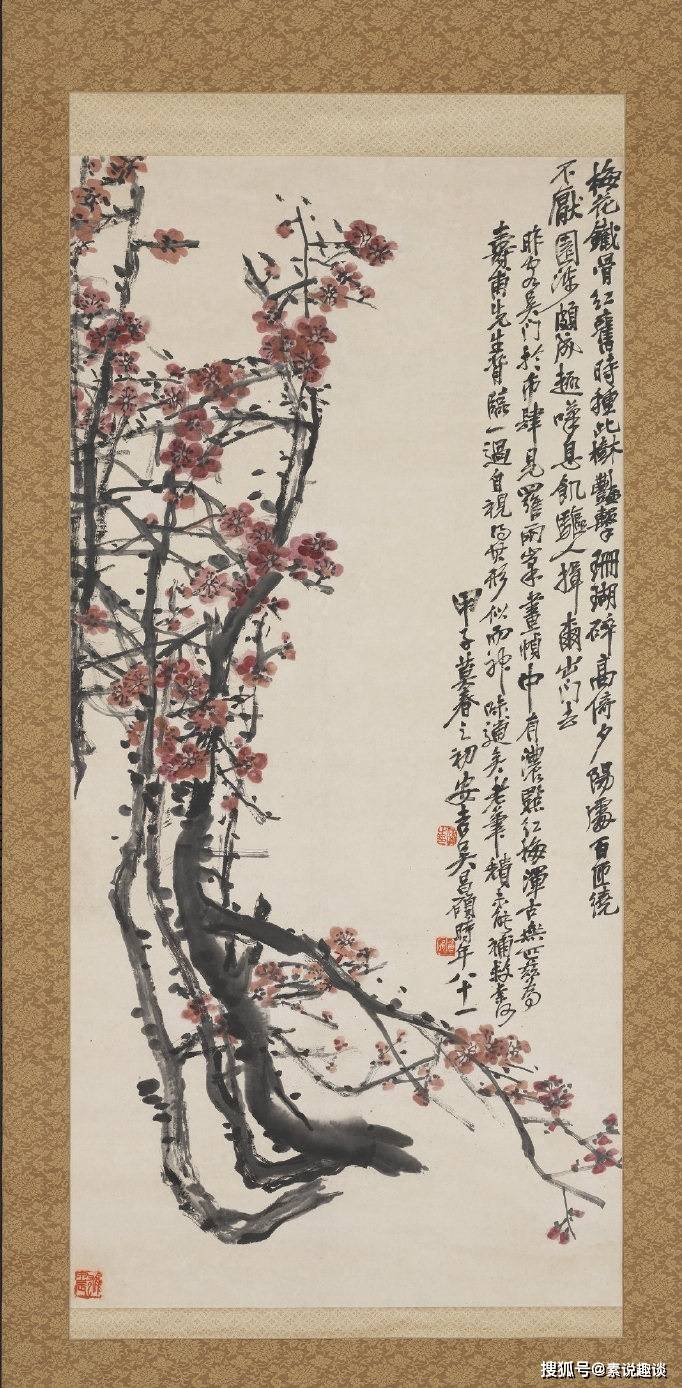 梅花鐵骨紅舊時種此樹豔擊珊瑚碎高倚夕陽處百匝繞
不厭園涉頗成趣嘆息飢驅人揖爾出門去
昨客吳門於市肆見羅兩峯畫幀中有濃點紅梅渾古無匹茲為
壽甫先生背臨一過自視得其形似而神味遠矣老筆頹
甲子莫春之初安吉吳昌碩時年八十一
搜狐号@素说趣谈